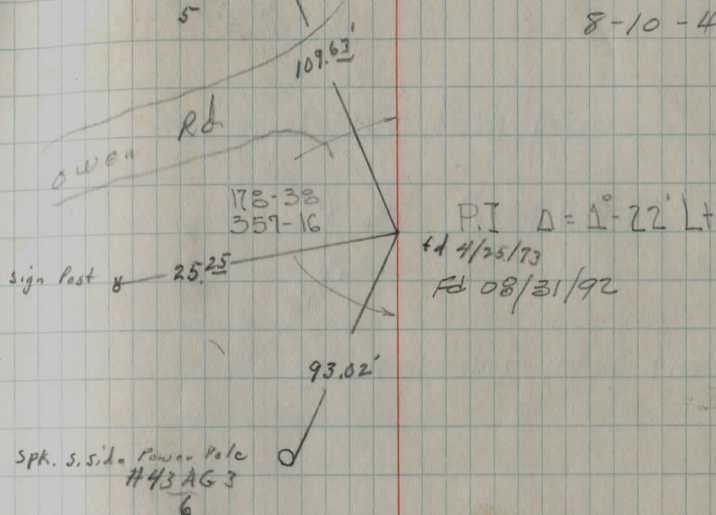 5
8-10-4
109.63'
Rd
Owen
178-38
357-16
P.I Δ = 1°-22' Lt
fd 4/25/73
Sign Post
25.25
Fd 08/31/92
93.02'
Spk. S. side Power Pole
#43 AG 3
6